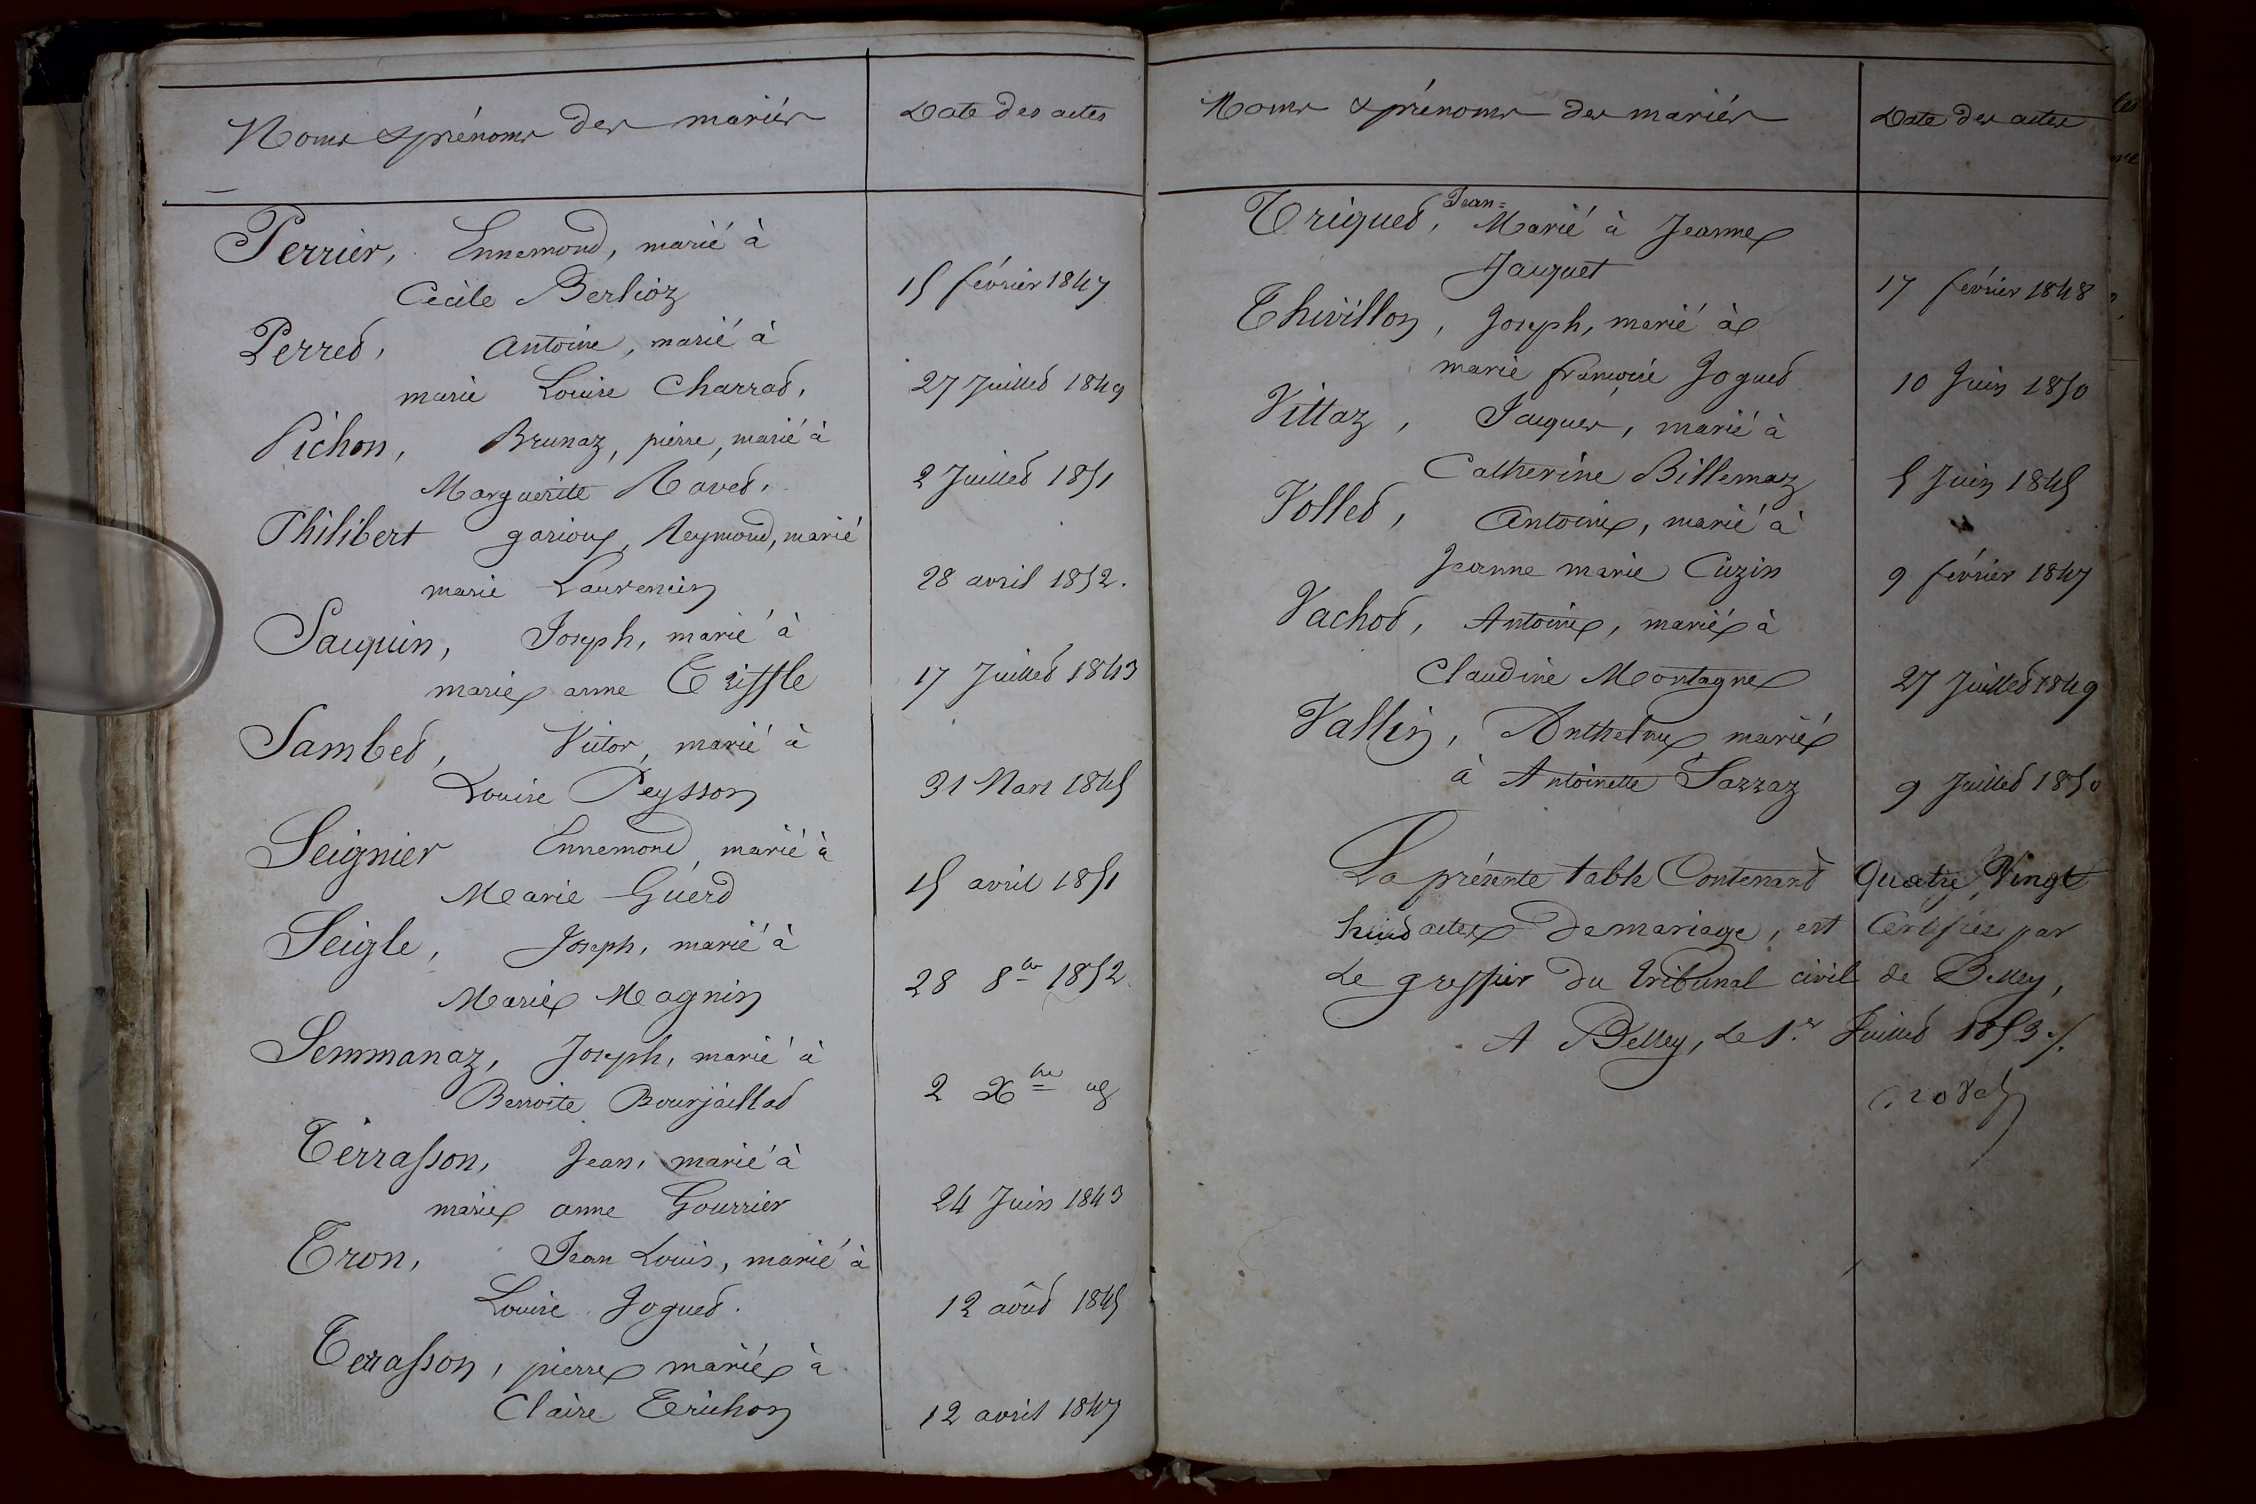 Noms & prénoms des mariés
Date des actes
Perrier, Ennemond, marié à
Cécile Berlioz
15 février 1847
Perret, Antoine, marié à
marie Louise Charrat,
27 Juillet 1849
Pichon, Brunaz, pierre, marié à
Marguerite Ravet,
2 Juillet 1851
Philibert garioux, Reymond, marié
marie Laurencin
28 avril 1852.
Sauquin, Joseph, marié à
marie anne Triffle
17 Juillet 1843
Sambet, Victor, marié à
Louise Peysson
31 Mars 1845
Seignier Ennemond, marié à
Marie Guerd
15 avril 1851
Seigle, Joseph, marié à
Marie Magnin
28 8bre 1852
Semmanaz, Joseph, marié à
Benoite Bourjaillat
2 Xbre
Terrasson, Jean, marié à
marie anne Gourrier
24 Juin 1843
Tron, Jean Louis, marié à
Louise Joguet.
12 août 1845
Terasson, pierre marié à
Claire Trichon
12 avril 1847
Noms & prénoms des mariés
Date des actes
Triquet, Jean= Marié à Jeanne
Jacquet
17 février 1848
Thivillon, Joseph, marié à
marie françoise Joguet
10 Juin 1850
Vittaz, Jacques, marié à
Catherine Billemaz
5 Juin 1845
Vollet, Antoine, marié à
Jeanne marie Cuzin
9 février 1847
Vachot, Antoine, marié à
Claudine Montagne
27 Juillet 1849
Vallin, Anthelme marié
à Antoinette Sarraz
9 Juillet 1850
La présente table Contenant Quatre Vingt
huit actes de mariage, est Certifiée par
le greffier du tribunal civil de Belley,
A Belley, le 1er Juillet 1853 ./.